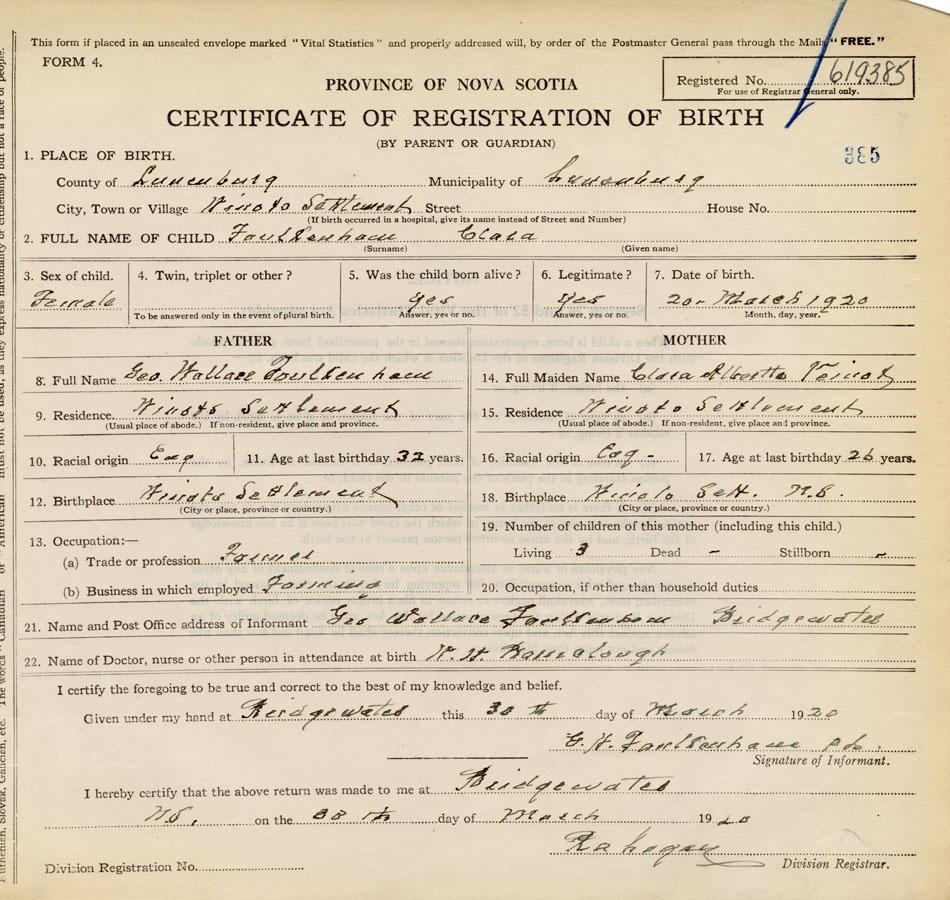 This form if placed in an unsealed envelope marked "Vital Statistics" and properly addressed will, by order of the Postmaster General pass through the Mails "FREE."
FORM 4.
Registered No. 619385
For use of Registrar General only.
PROVINCE OF NOVA SCOTIA
CERTIFICATE OF REGISTRATION OF BIRTH
(BY PARENT OR GUARDIAN)
385
1. PLACE OF BIRTH.
County of Lunenburg Municipality of Lunenburg
City, Town or Village Settlement Street House No.
(If birth occurred in a hospital, give its name instead of Street and Number)
2. FULL NAME OF CHILD Faulkenham Clara
(Surname) (Given name)
3. Sex of child. 4. Twin, triplet or other? 5. Was the child born alive? 6. Legitimate? 7. Date of birth.
Female yes yes 20 March 1920
To be answered only in the event of plural birth. Answer, yes or no. Answer, yes or no. Month, day, year.
FATHER MOTHER
8. Full Name Geo. Wallace Faulkenham 14. Full Maiden Name Clara Alberta
9. Residence. Settlement 15. Residence Settlement
(Usual place of abode.) If non-resident, give place and province. (Usual place of abode.) If non-resident, give place and province.
10. Racial origin 11. Age at last birthday 32 years. 16. Racial origin 17. Age at last birthday 26 years.
12. Birthplace Settlement 18. Birthplace Sett. N.S.
(City or place, province or country.) (City or place, province or country.)
13. Occupation:— 19. Number of children of this mother (including this child.)
(a) Trade or profession Farmer Living 3 Dead - Stillborn -
(b) Business in which employed Farming 20. Occupation, if other than household duties
21. Name and Post Office address of Informant Geo Wallace Faulkenham Bridgewater
22. Name of Doctor, nurse or other person in attendance at birth
I certify the foregoing to be true and correct to the best of my knowledge and belief.
Given under my hand at Bridgewater this 30 th day of March 1920
G. W. Faulkenham
Signature of Informant.
I hereby certify that the above return was made to me at Bridgewater
N.S. on the 30 th day of March 1920
Division Registration No. Division Registrar.